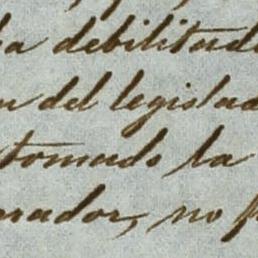 a debilitad
del legislad
tomado la
rador, no